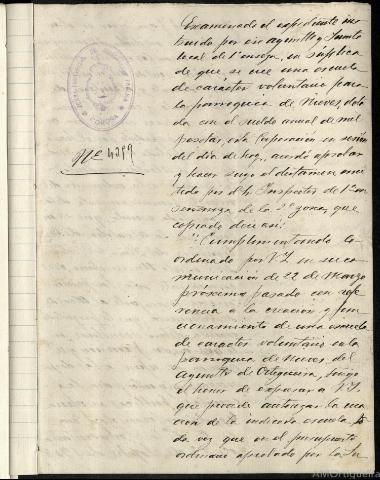 Examinado el expediente ins-
truido por ese Aymtto y Junta
local de 1ª enseñza, en súplica
de que se cree una escuela
de carácter voluntario para
la parroquia de Nieves, dota
da con el sueldo anual de mil
pesetas, esta Corporación en sesión
del día de hoy, acordó aprobar
y hacer suyo el dictamen emi-
tido por el Sr. Inspector de 1ª en-
señanza de la 2ª zona, que
copiado dice así:
"Cumplimentando lo
ordenado por V.S. en su co-
municación de 22 de Marzo
próximo pasado con refe-
rencia a la creación y fun-
cionamiento de una escuela
de carácter voluntario en la
parroquia de Nieves del
Aymtto de Ortigueira, tengo
el honor de exponer a V.S.
que procede autorizar la crea-
ción de la indicada escuela to-
da vez que en el presupuesto
ordinario aprobado por la Su
Nº 4299
CORUÑA
AMOrtigueira